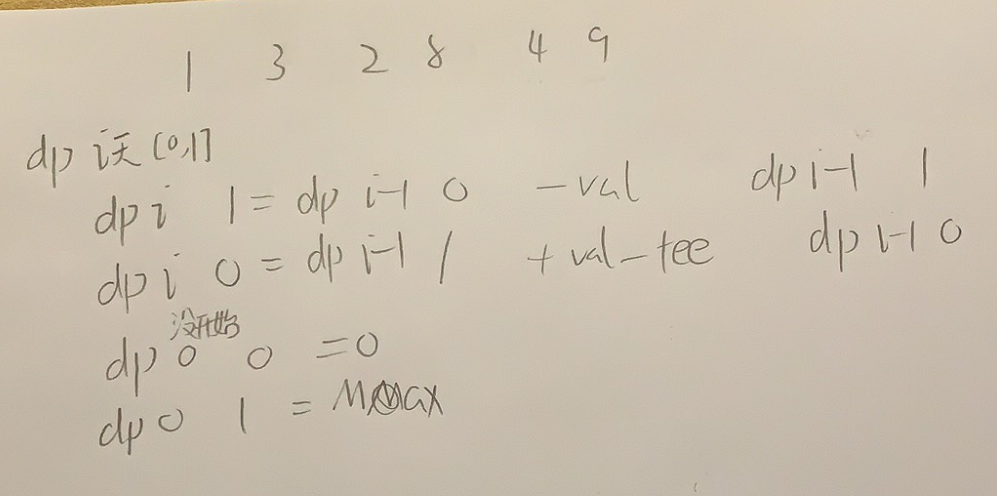 1 3 2 8 4 9
dp i天 [0,1]
dp i 1 = dp i-1 0 -val dp i-1 1
dp i 0 = dp i-1 1 +val-fee dp i-1 0
没开始
dp 0 0 =0
dp 0 1 =